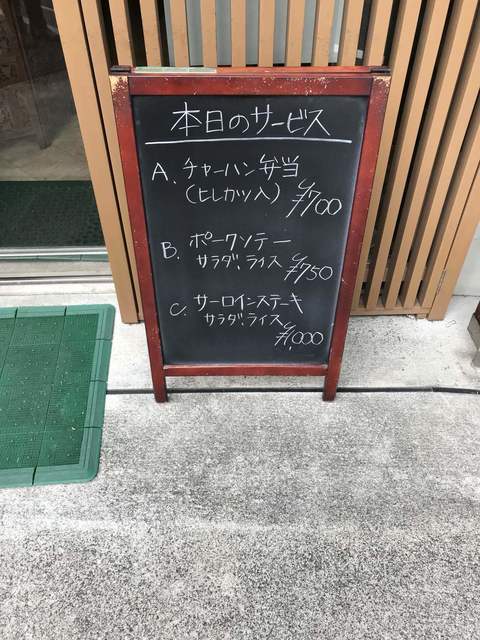 本日のサービス
A. チャーハン弁当
(ヒレカツ入) ¥700
B. ポークソテー
サラダ、ライス ¥750
C. サーロインステーキ
サラダ、ライス
¥1,000